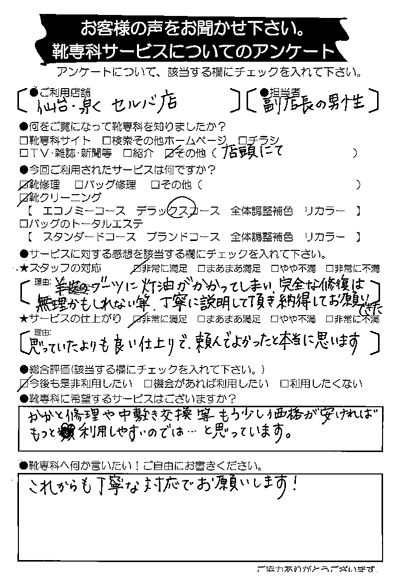 お客様の声をお聞かせ下さい。
靴専科サービスについてのアンケート
アンケートについて、該当する欄にチェックを入れて下さい。
●ご利用店舗 ●担当者
仙台・泉 セルバ店 副店長の男性
●何をご覧になって靴専科を知りましたか?
□靴専科サイト □検索その他ホームページ □チラシ
□TV・雑誌・新聞等 □紹介 ☑その他( 店頭にて )
●今回ご利用されたサービスは何ですか?
☑靴修理 □バッグ修理 □その他( )
☑靴クリーニング
【 エコノミーコース デラックスコース 全体調整補色 リカラー 】
□バッグのトータルエステ
【 スタンダードコース ブランドコース 全体調整補色 リカラー 】
●サービスに対する感想を該当する欄にチェックを入れて下さい。
★スタッフの対応 ☑非常に満足 □まあまあ満足 □やや不満 □非常に不満
理由: ブーツに灯油がかかってしまい、完全な修復は
無理かもしれない等、丁寧に説明して頂き納得してお願いできた
★サービスの仕上がり ☑非常に満足 □まあまあ満足 □やや不満 □非常に不満
理由:
思っていたよりも良い仕上りで、頼んでよかったと本当に思います
●総合評価(該当する欄にチェックを入れて下さい。)
☑今後も是非利用したい □機会があれば利用したい □利用したくない
●靴専科に希望するサービスはございますか?
かかと修理や中敷き交換等もう少し価格が安ければ
もっと利用しやすいのでは…と思っています。
●靴専科へ何か言いたい!ご自由にお書きください。
これからも丁寧な対応でお願いします!
ご協力ありがとうございます。